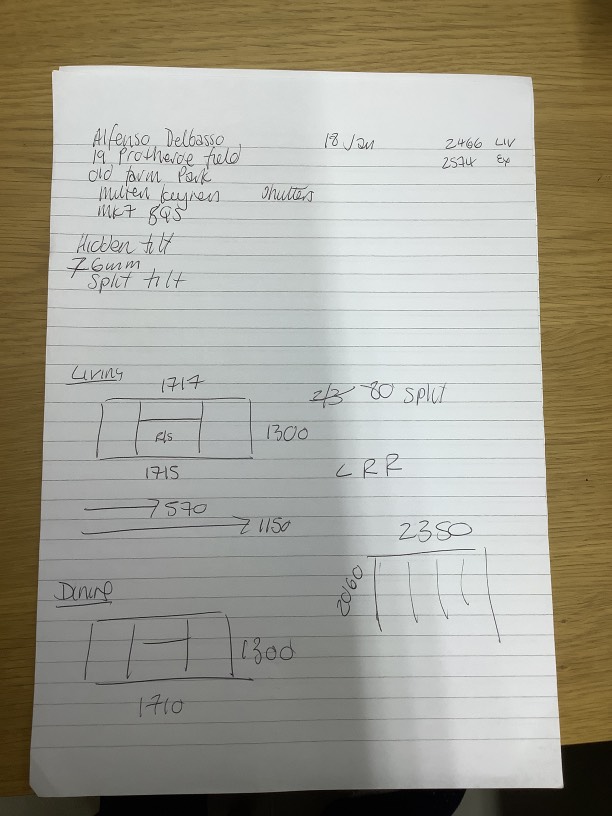 Alfenso Delbasso 18 Jan 2466 LIV
19 Protherde field 2574 Ex
old farm Park
milten keynen shutters
mk7 8QS
Hidden tilt
76mm
Split tilt
Living
1717
2/3 80 split
R/S
1300
1715
L R R
570
1150
2350
2060
Dining
1300
1710